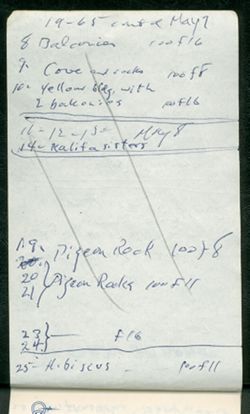 19-65 cont'd May 7
8 Balconies 100 f16
9. Cove and rocks 100 f8
10- Yellow bldg. with
2 balconies 100 f16
11-12-13- May 8
14- Kalifa sisters
19. Pigeon Rock 100 f 8
20
21 Pigeon Rocks 100 f11
23
24. f16
25- Hibiscus - 100 f11